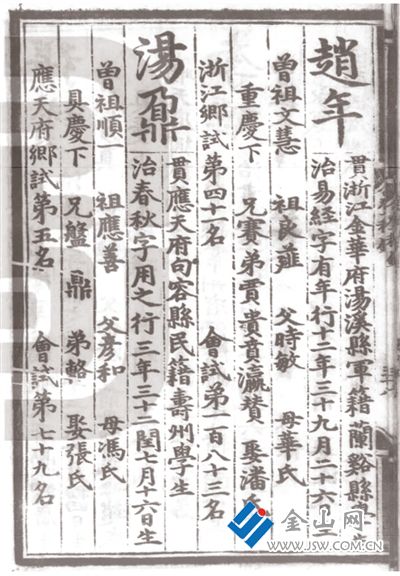 趙年
貫浙江金華府湯溪縣軍籍蘭谿縣
治易經字有年行十二年三十九月二十六
曾祖文慧 祖良 父時敏 母華氏
重慶下 兄賽弟賈貴賁瀛賛 娶潘
浙江鄉試第四十一名 會試第一百八十三名
湯鼐
貫應天府句容縣民籍壽州學生
治春秋字用之行三年三十二閏七月十六日生
曾祖順一 祖應善 父彥和 母馮氏
具慶下 兄盤 鼎 弟輅 娶張氏
應天府鄉試第五名 會試第七十九名
金山网
WWW.JSW.COM.CN